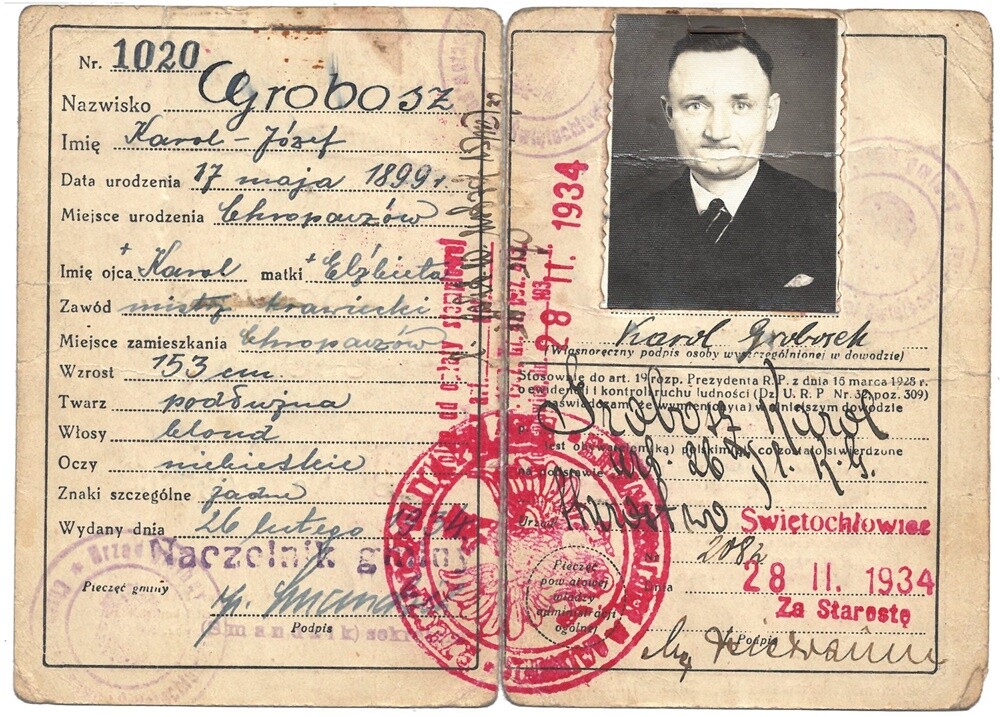 Nr. 1020
Nazwisko Grobosz
Imię Karol-Józef
Data urodzenia 17 maja 1899 r.
Miejsce urodzenia Chropaczów
Imię ojca + Karol matki + Elżbieta
Zawód mistrz krawiecki
Miejsce zamieszkania Chropaczów
Wzrost 153 cm
Twarz podłużna
Włosy blond
Oczy niebieskie
Znaki szczególne
Wydany dnia 26 lutego 1934
Naczelnik gminy
Pieczęć gminy
Podpis
28 II. 1934
Karol Grobosch
(Własnoręczny podpis osoby wyszczególnionej w dowodzie)
Stosownie do art. 19 rozp. Prezydenta R. P. z dnia 16 marca 1928 r.
o ewidencji i kontroli ruchu ludności (Dz. U. R. P. Nr. 32, poz. 309)
zaświadczam, że wymieniony(a) w niniejszym dowodzie
Grobosz Karol
jest obywatelem(ką) polskim(ą), co zostało stwierdzone
na podstawie
Urząd Starostwo Świętochłowice
Nr.
Dnia 28 II. 1934
Za Starostę
Pieczęć
powiatowej
władzy
administracji
ogólnej
Podpis